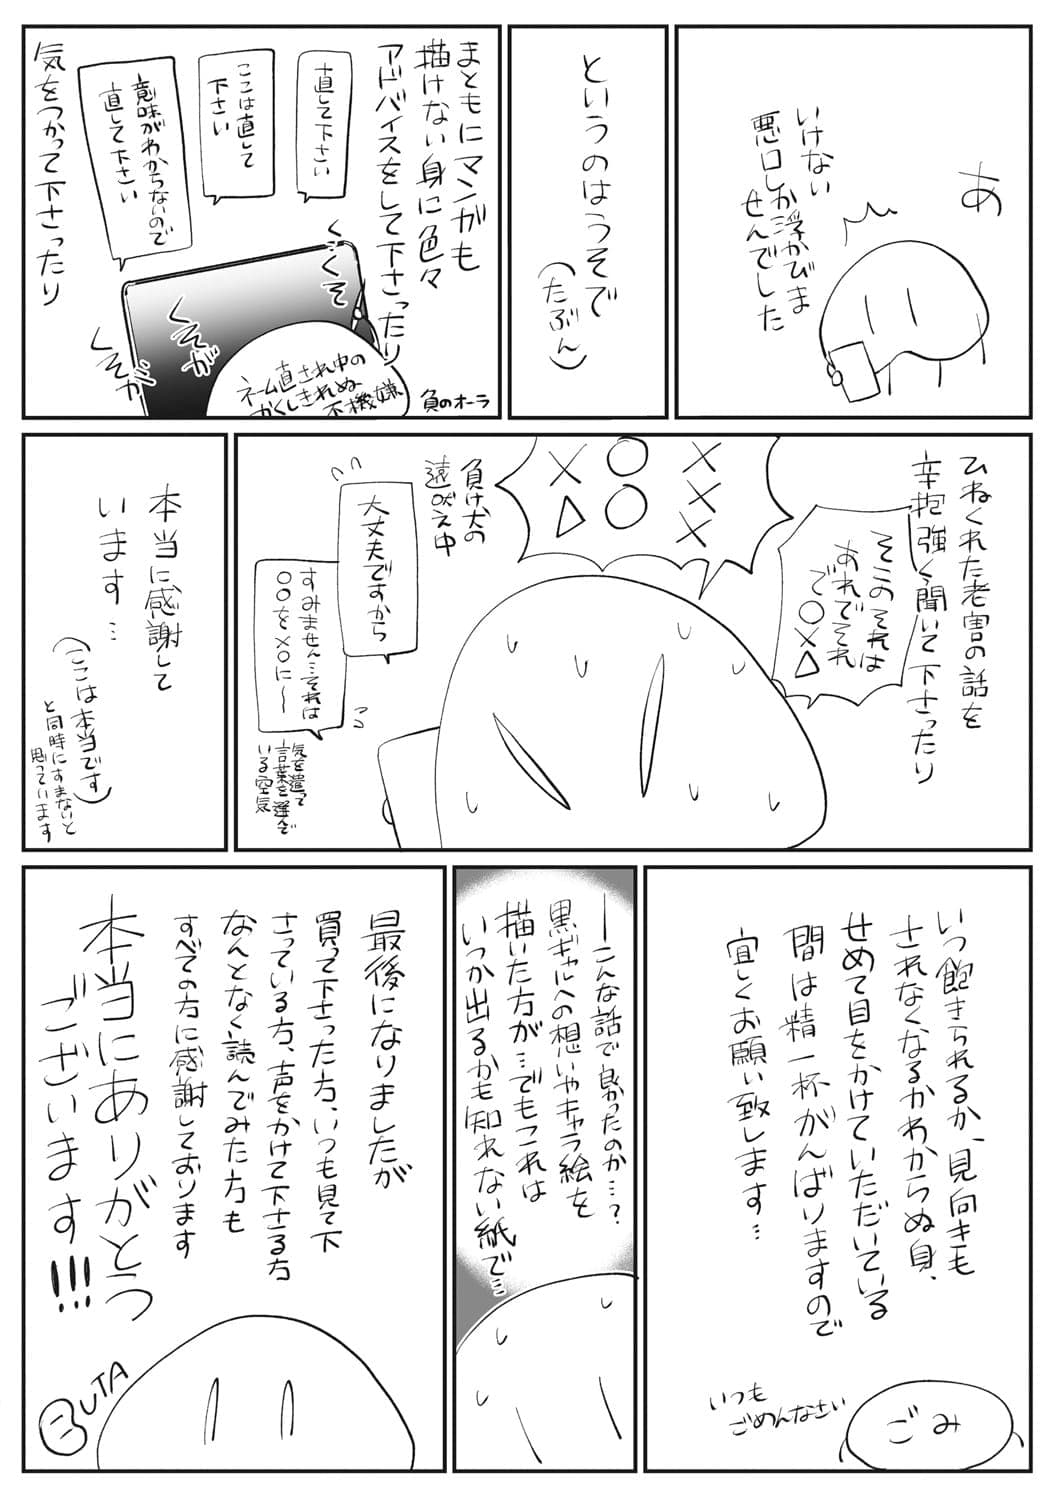 あ
いけない
悪口しか浮かびま
せんでした
というのはうそで
(たぶん)
まともにマンガも
描けない身に色々
アドバイスをして下さったり
直して下さい
ここは直して
下さい
意味がわからないので
直して下さい
気をつかって下さったり
くくそ
くそが
くそが
ネーム直され中の
かくしきれぬ
不機嫌
負のオーラ
ひねくれた老害の話を
辛抱強く聞いて下さったり
そこのそれは
あれでそれ
で○×△
×××
○○
×△
負け犬の
遠吠え中
大丈夫ですから
すみません…それは
○○を×○に〜
気を遣って
言葉を選んで
いる空気
本当に感謝して
います…
(ここは本当です)
と同時にすまないと
思っています
いつ飽きられるか、見向きも
されなくなるかわからぬ身、
せめて目をかけていただいている
間は精一杯がんばりますので
宜しくお願い致します…
ごみ
いつも
ごめんなさい
―こんな話で良かったのか…?
黒ギャルへの想いやキャラ絵を
描いた方が…でもこれは
いつか出るかも知れない紙で…
最後になりましたが
買って下さった方、いつも見て下
さっている方、声をかけて下さる方
なんとなく読んでみた方も
すべての方に感謝しております
本当にありがとう
ございます!!!
BUTA